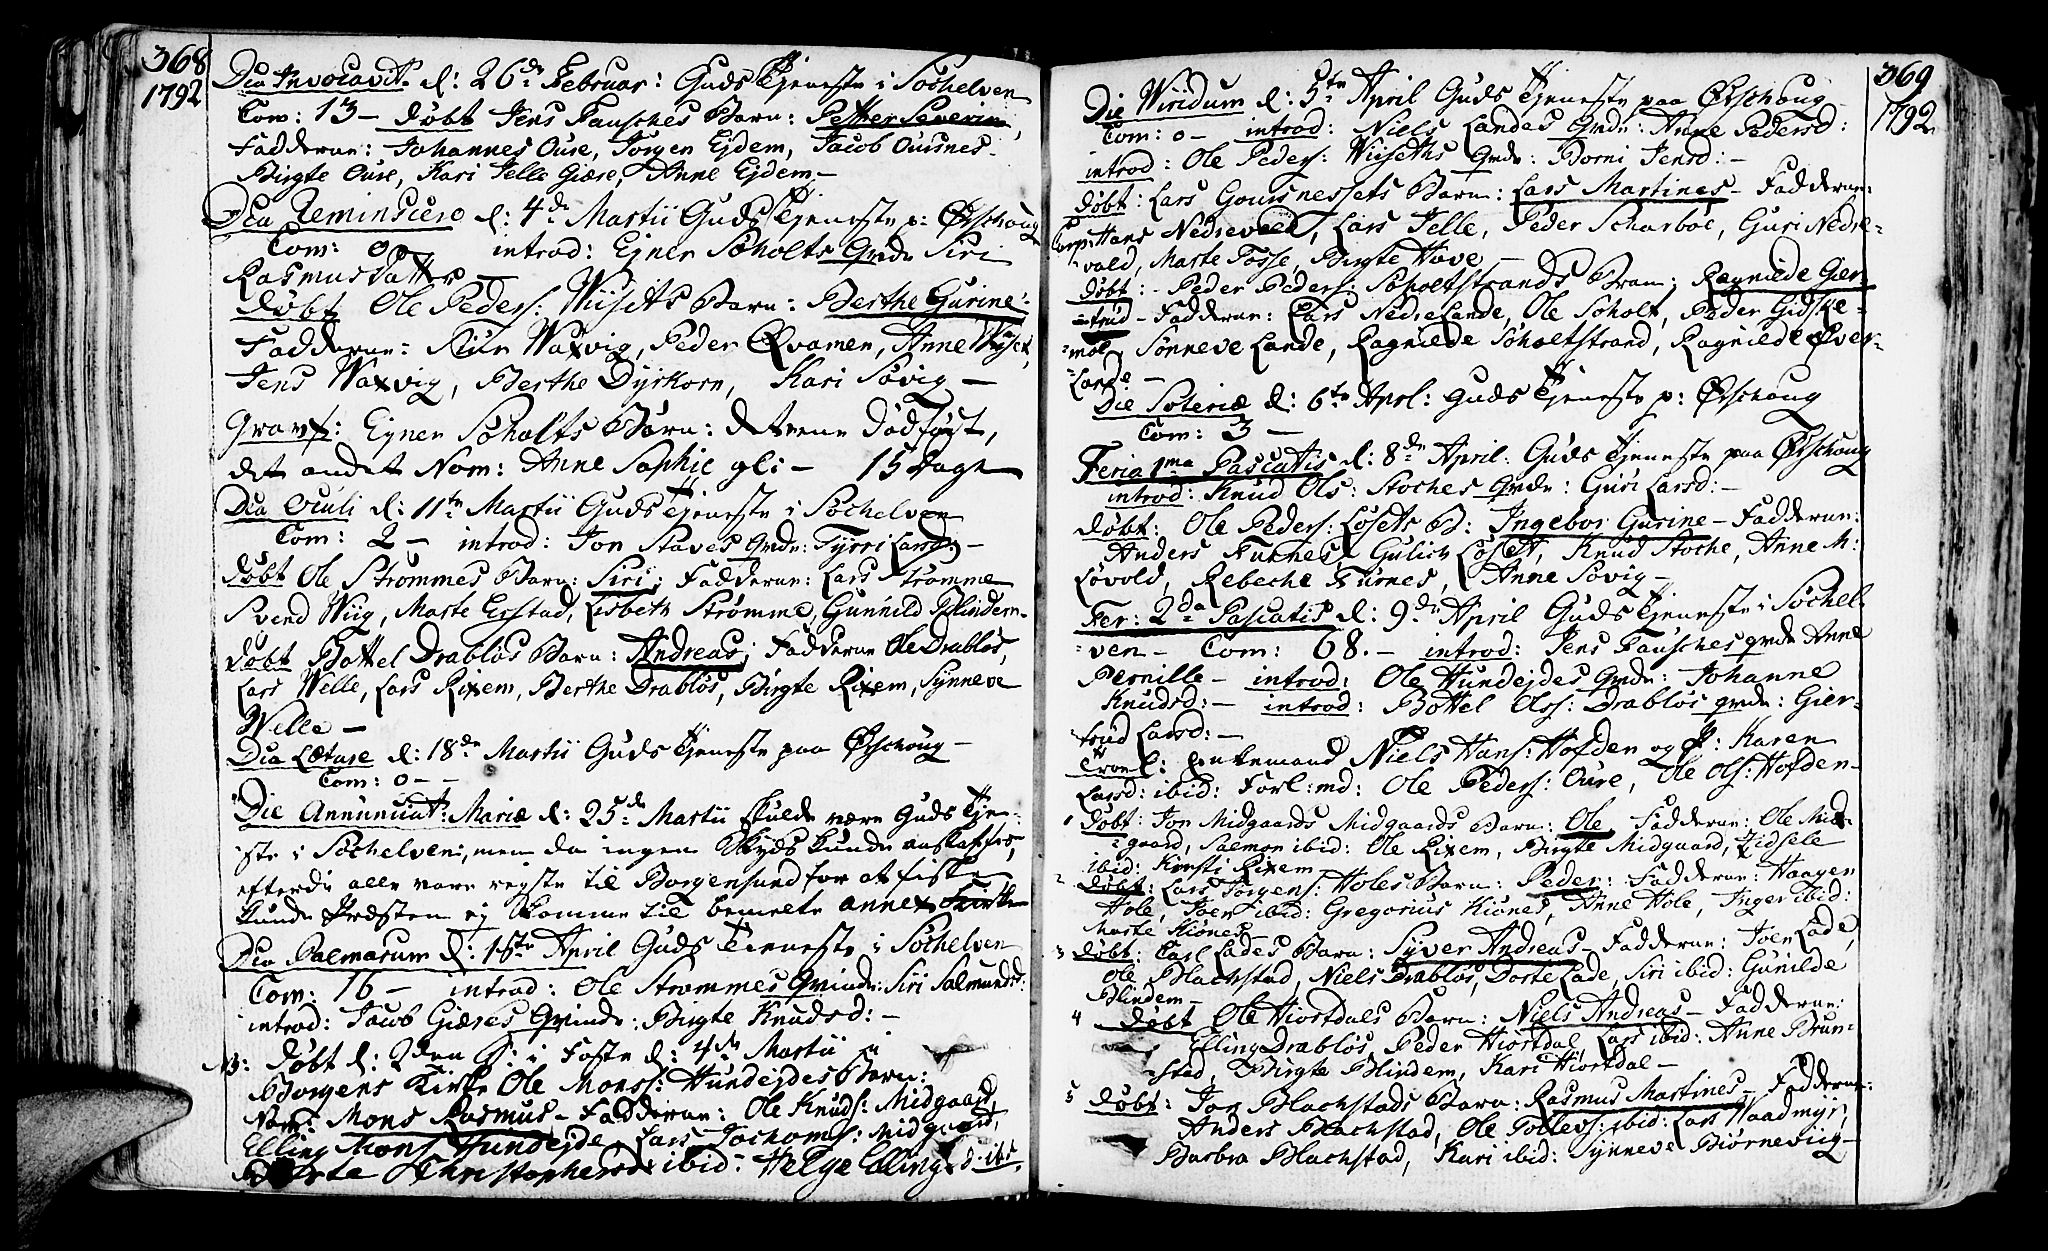 368
1792
Dca Invocavit. d: 26de Februar: Guds Tjeneste i Søchelven
Com: 13 - døbt Jens Fausches Barn: Petter Severin,
Fadderne: Johannes Oure, Jørgen Ejdem, Jacob Oursnes.
Birgte Oure, Kari Jelle Giære, Anne Ejdem -
Dca Reminscero d: 4de Martii Guds Tjeneste p: Ørschoug
Com: 0 introd: Ejner Søholts Qvde Siri
Rasmusdatter -
døbt Ole Peders: Wiisets Barn: Berthe Gurine:
Fadderne: Siur Waxvig, Peder Qvamen, Anne Wiiset,
Jens Waxvig, Berthe Dyrkorn, Kari Søvig -
Gravf: Ejner Søholts Børn: det eene dødfødt,
det andet Nom: Anne Sophie gli - 15 dage
Dca Oculi d: 11te Martii Guds Tjeneste i Søchelven
Com: 2 - introd: Jon Staves Qvde: Tyrri Larsd: -
døbt Ole Strømmes Barn: Siri: Fadderne: Lars Strømme
Svend Wiig, Marte Erstad, Lisbeth Strømme, Gunnild Blindem -
døbt Bottel Drabløs Barn: Andreas; Fadderne Ole Drabløs,
Lars Welle, Lars Rixem, Berthe Drabløs, Birgte Rixem, Synneve
Welle -
Dca Lætare d: 18de Martii Guds Tjeneste paa Ørschoug -
Com: 0 -
Die Annunciat: Mariæ d: 25de Martii skulde være Guds Tjene-
ste i Søchelven, men da ingen Skyds kunde anskaffes,
efterdi alle vare reyste til Borgensund for at fiske
kunde Præsten ej komme til bemelte annex Kirke
Dca Palmarum d: 1ste April Guds Tjeneste i Søchelven
Com: 16 - introd: Ole Strømmes Qvinde: Siri Salmundsd:
introd: Jacob Giæres Qvinde: Birgte Knudsd: -
NB: døbt d: 2den S: i Faste d: 4de Martii i
Borgens Kirke Ole Monss: Hundejdes Barn:
Nom: Mons Rasmus - Fadderne: Ole Knuds: Midgaard,
Elling Mons: Hundejde, Lars Jochoms: Midgaard,
Christophersd: ibid: Helge Ellingsd: ibid:
369
1792
Die Viridum d: 5te April Guds Tjeneste paa Ørschoug -
Com: 0 - introd: Niels Landes Qvde: Anne Pedersd:
introd: Ole Peders: Wiiseths Qvde: Borni Jensd: -
døbt: Lars Goursnessets Barn: Lars Martines - Fadderne:
Hans Nedrevold, Lars Jelle, Peder Scharboe, Guri Nedre-
vold, Marte Fosse, Birgte Have -
døbt: - Peder Peders: Søholtstrands Barn: Ragnilde Gier-
trud - Fadderne: Lars Nedre Lande, Ole Søholt, Peder Gidske-
moe, Sønneve Lande, Ragnilde Søholtstrand, Ragnilde Øver-
Lande -
Die Soteriæ d: 6te April: Guds Tjeneste p: Ørschoug
Com: 3 -
Feria 1ma Pascatis d: 8de April: Guds Tjeneste paa Ørschoug
introd: Knud Ols: Stoches Qvde: Guri Larsd: -
døbt: Ole Peders: Løsets B: Ingebor Gurine - Fadderne:
Anders Furnes, Gulich Løset, Knud Stoche, Anne M:
Løvold, Rebeche Furnes, Anne Søvig -
Fer: 2da Pascatis d: 9de April Guds Tjeneste i Søchel-
ven - Com: 68. - introd: Jens Fausches qvde Anne
Pernille - introd: Ole Hundejdes Qvde: Johanne
Knudsd: - introd: Bottel Olss: Drabløs qvde: Gier-
trud Larsd: -
Trol: Enkemand Niels Hans: Hofden og P: Karen
Larsd: ibid: Forl: md: Ole Peders: Oure, Ole Ols: Hofden -
1 døbt: Jon Midgaards Midgaards Barn: Ole Fadderne: Ole Mid-
gaard, Salmon ibid: Ole Rixem, Birgte Midgaard, Zidsele
ibid: Kirsti Rixem
2 døbt: Lars Jørgens: Holes Barn: Peder: Fadderne: Haagen
Hole, Joen ibid: Gregorius Kiønes, Anne Hole, Inger ibid:
Marte Kiønes -
3 døbt: Carl Lades Barn: Syver Andreas - Fadderne: Joen Lade,
Ole Blachstad, Niels Drabløs, Dorte Lade, Siri ibid: Gunilde
Blindem -
4 døbt Ole Hiortdals Barn: Niels Andreas - Fadderne:
Elling Drabløs, Peder Hiortdal, Lars ibid: Anne Brun-
stad, Birgte Blindem, Kari Hiortdal -
5 døbt: Jon Blachstads Barn: Rasmus Martines - Fadderne:
Anders Blachstad, Ole Tollevs: ibid: Lars Waadmyr,
Barbra Blachstad, Kari ibid: Synneve Biørneviig -